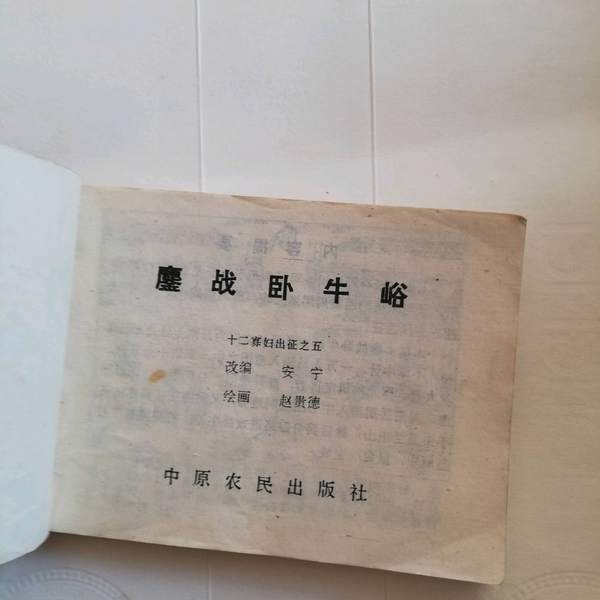 鏖战卧牛峪
十二寡妇出征之五
改编 安宁
绘画 赵贵德
中原农民出版社
内容提要